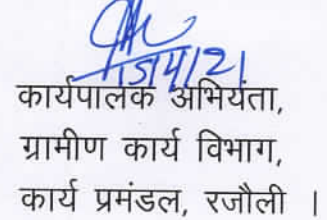 15/4/21
कार्यपालक अभियंता,
ग्रामीण कार्य विभाग,
कार्य प्रमंडल, रजौली ।